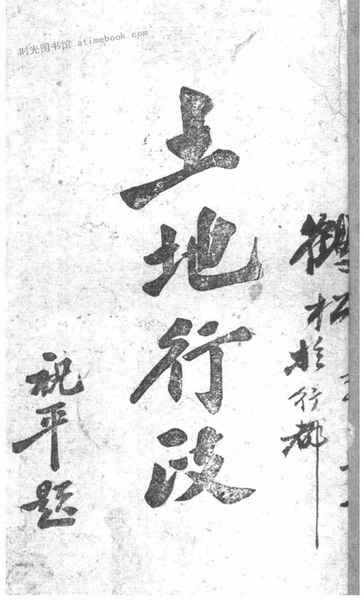 时光图书馆 atimebook.com
鹤松
于行都
土地行政
祝平题